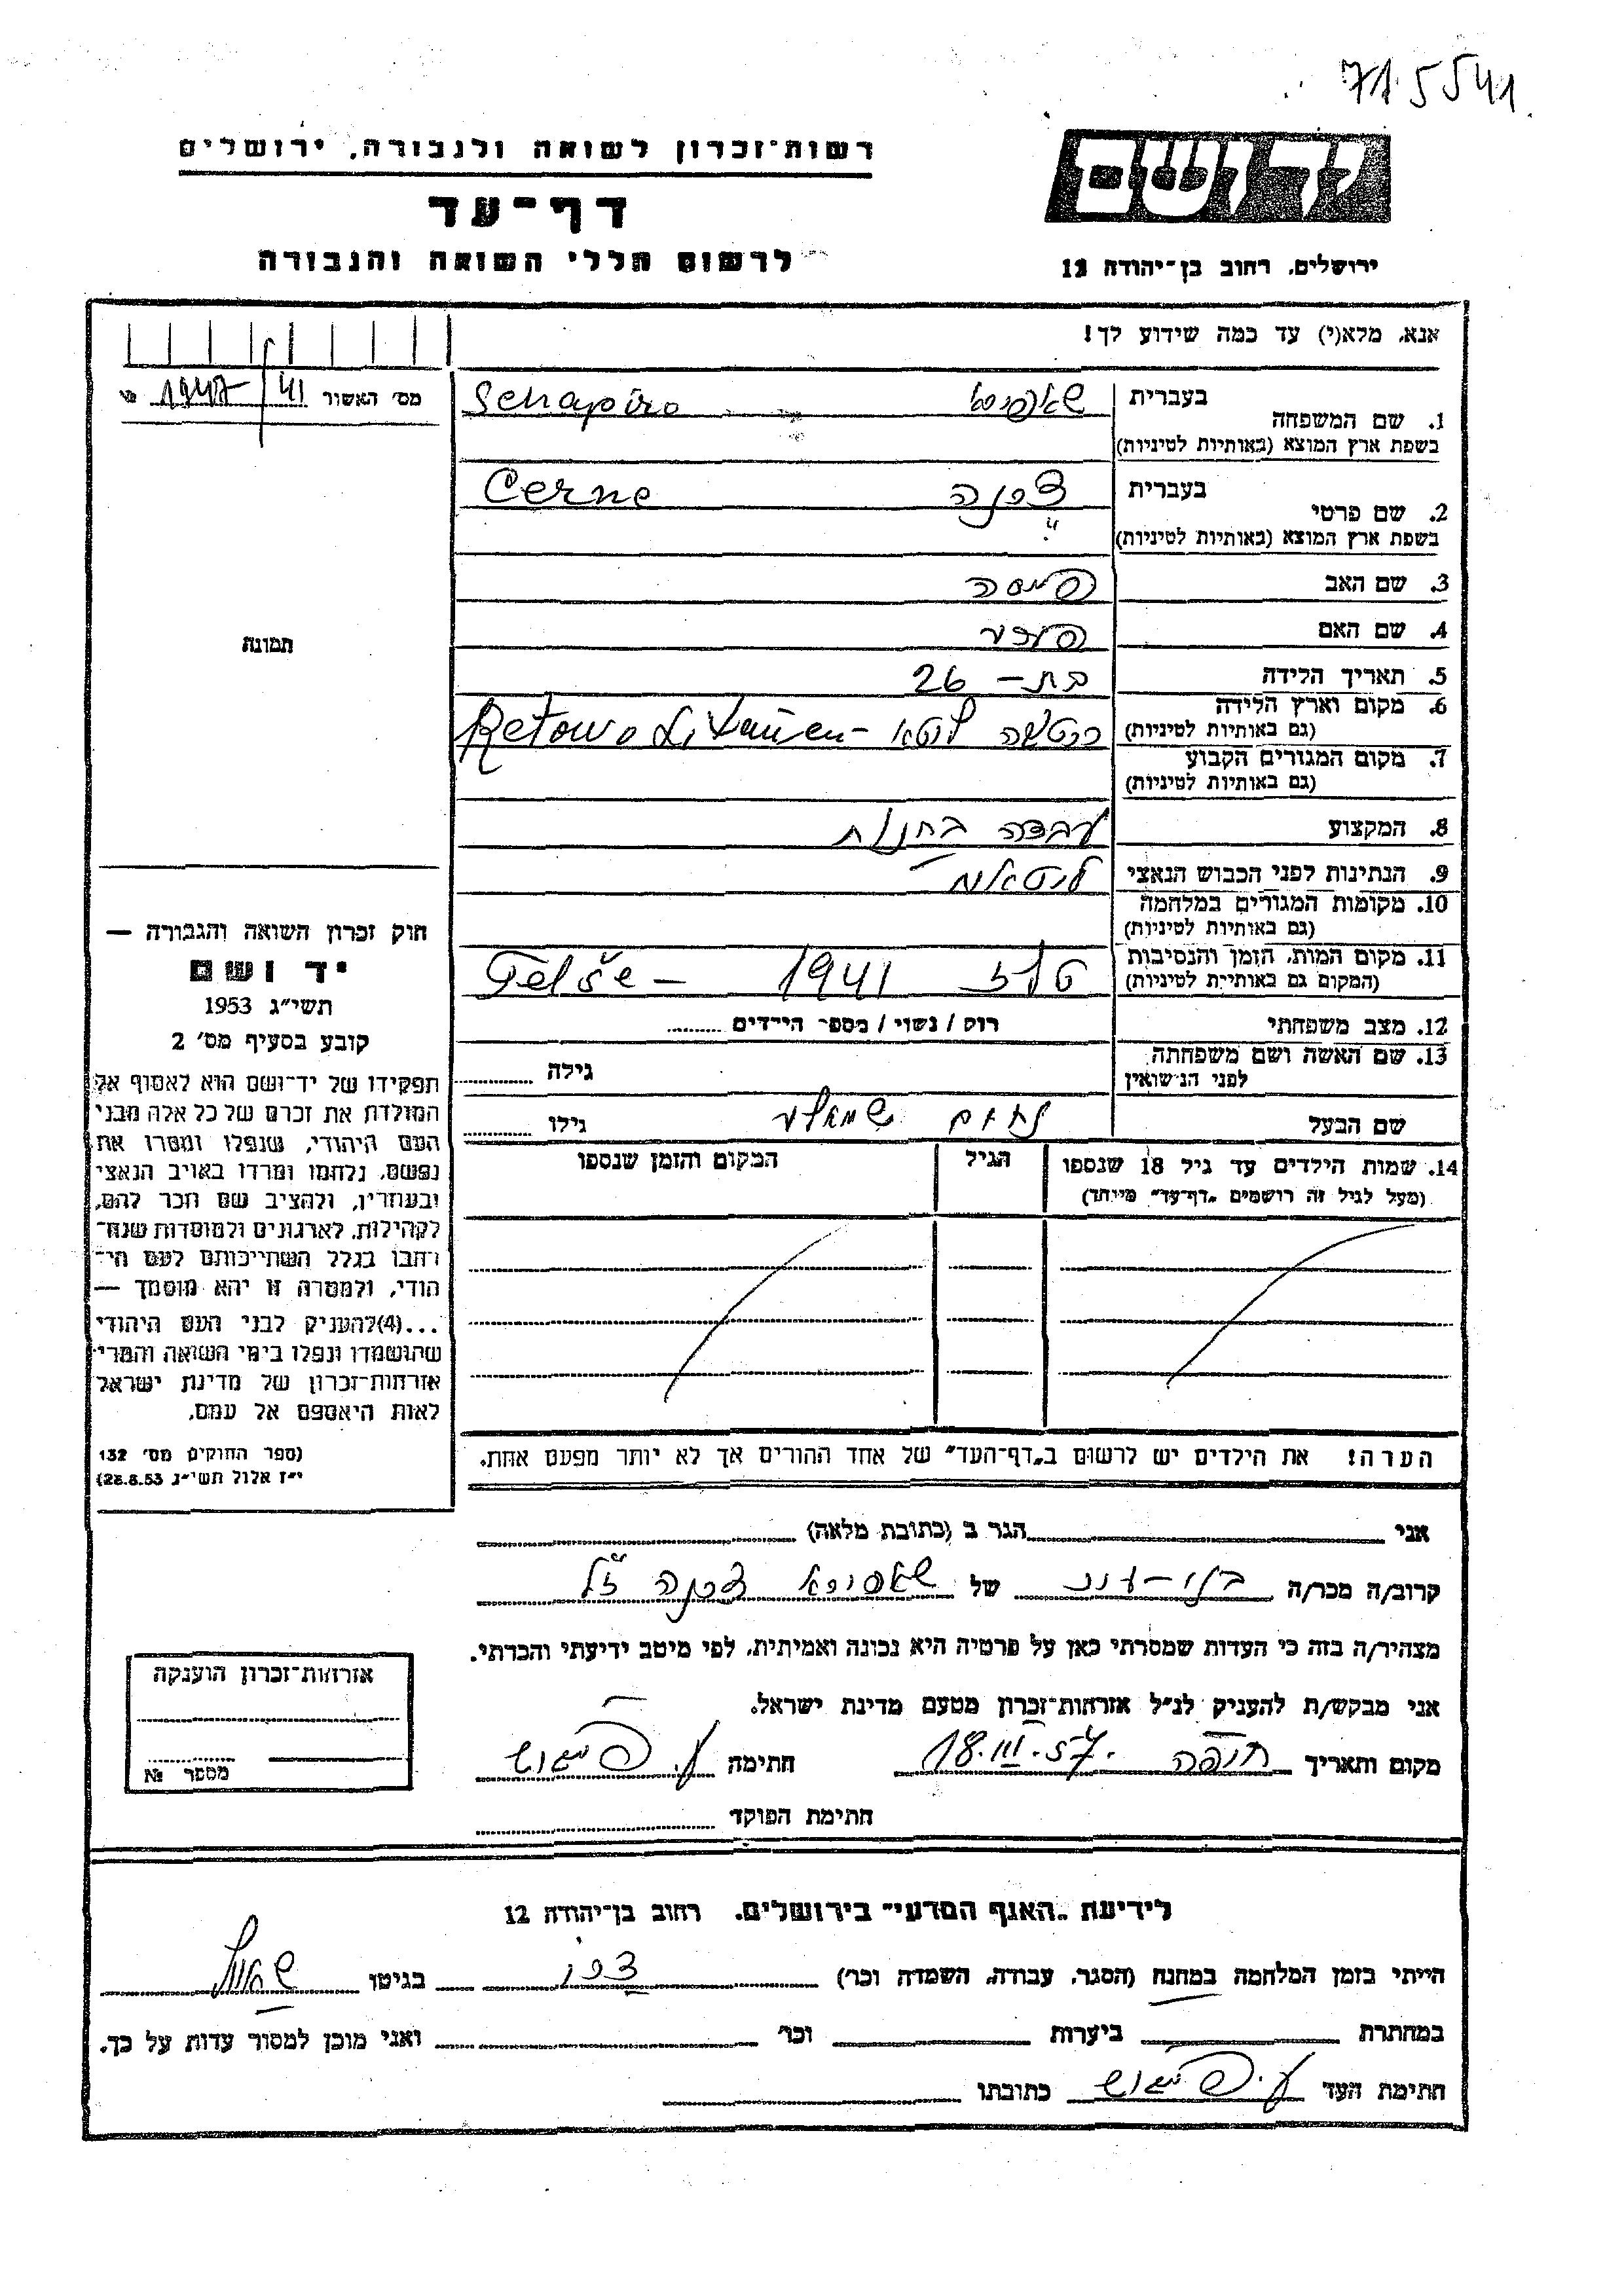 71 5541
רשות־זכרון לשואה ולגבורה, ירושלים
דף־עד
לרשום חללי השואה והגבורה
יד ושם
ירושלים, רחוב בן־יהודה 12
אנא, מלא(י) עד כמה שידוע לך!
מס׳ האשור 41/
1. שם המשפחה בעברית
בשפת ארץ המוצא (באותיות לטיניות)
Schapiro
2. שם פרטי בעברית
בשפת ארץ המוצא (באותיות לטיניות)
Cerne
3. שם האב
4. שם האם
5. תאריך הלידה בת – 26
6. מקום וארץ הלידה
(גם באותיות לטיניות)
Retowo Litauen –
7. מקום המגורים הקבוע
(גם באותיות לטיניות)
8. המקצוע עבדה בחנות
9. הנתינות לפני הכבוש הנאצי ליטאית
10. מקומות המגורים במלחמה
(גם באותיות לטיניות)
11. מקום המות, הזמן והנסיבות
(המקום גם באותיות לטיניות)
טלז 1941 Telše –
12. מצב משפחתי רוק / נשוי / מספר הילדים
13. שם האשה ושם משפחתה
לפני הנשואין
גילה
שם הבעל גילו
14. שמות הילדים עד גיל 18 שנספו הגיל המקום והזמן שנספו
(מעל לגיל זה רושמים „דף־עד” מיוחד)
הערה! את הילדים יש לרשום ב„דף־העד” של אחד ההורים אך לא יותר מפעם אחת.
תמונה
חוק זכרון השואה והגבורה —
יד ושם
תשי״ג 1953
קובע בסעיף מס׳ 2
תפקידו של יד־ושם הוא לאסוף אל
המולדת את זכרם של כל אלה מבני
העם היהודי, שנפלו ומסרו את
נפשם, נלחמו ומרדו באויב הנאצי
ובעוזריו, ולהציב שם וזכר להם,
לקהילות, לארגונים ולמוסדות שנח־
רבו בגלל השתייכותם לעם הי־
הודי, ולמטרה זו יהא מוסמך —
...(4) להעניק לבני העם היהודי
שהושמדו ונפלו בימי השואה והמרי
אזרחות־זכרון של מדינת ישראל
לאות היאספם אל עמם.
(ספר החוקים מס׳ 132
י״ז אלול תשי״ג 28.8.53)
אני הגר ב (כתובת מלאה)
קרוב/ה מכר/ה של
מצהיר/ה בזה כי העדות שמסרתי כאן על פרטיה היא נכונה ואמיתית, לפי מיטב ידיעתי והכרתי.
אני מבקש/ת להעניק לנ״ל אזרחות־זכרון מטעם מדינת ישראל.
מקום ותאריך חיפה 18.III.57. חתימה
חתימת הפוקד
אזרחות־זכרון הוענקה
מספר №
לידיעת „האגף המדעי” בירושלים, רחוב בן־יהודה 12
הייתי בזמן המלחמה במחנה (הסגר, עבודה, השמדה וכו׳) בגיטו
במחתרת ביערות וכו׳ ואני מוכן למסור עדות על כך.
חתימת העד כתובתו